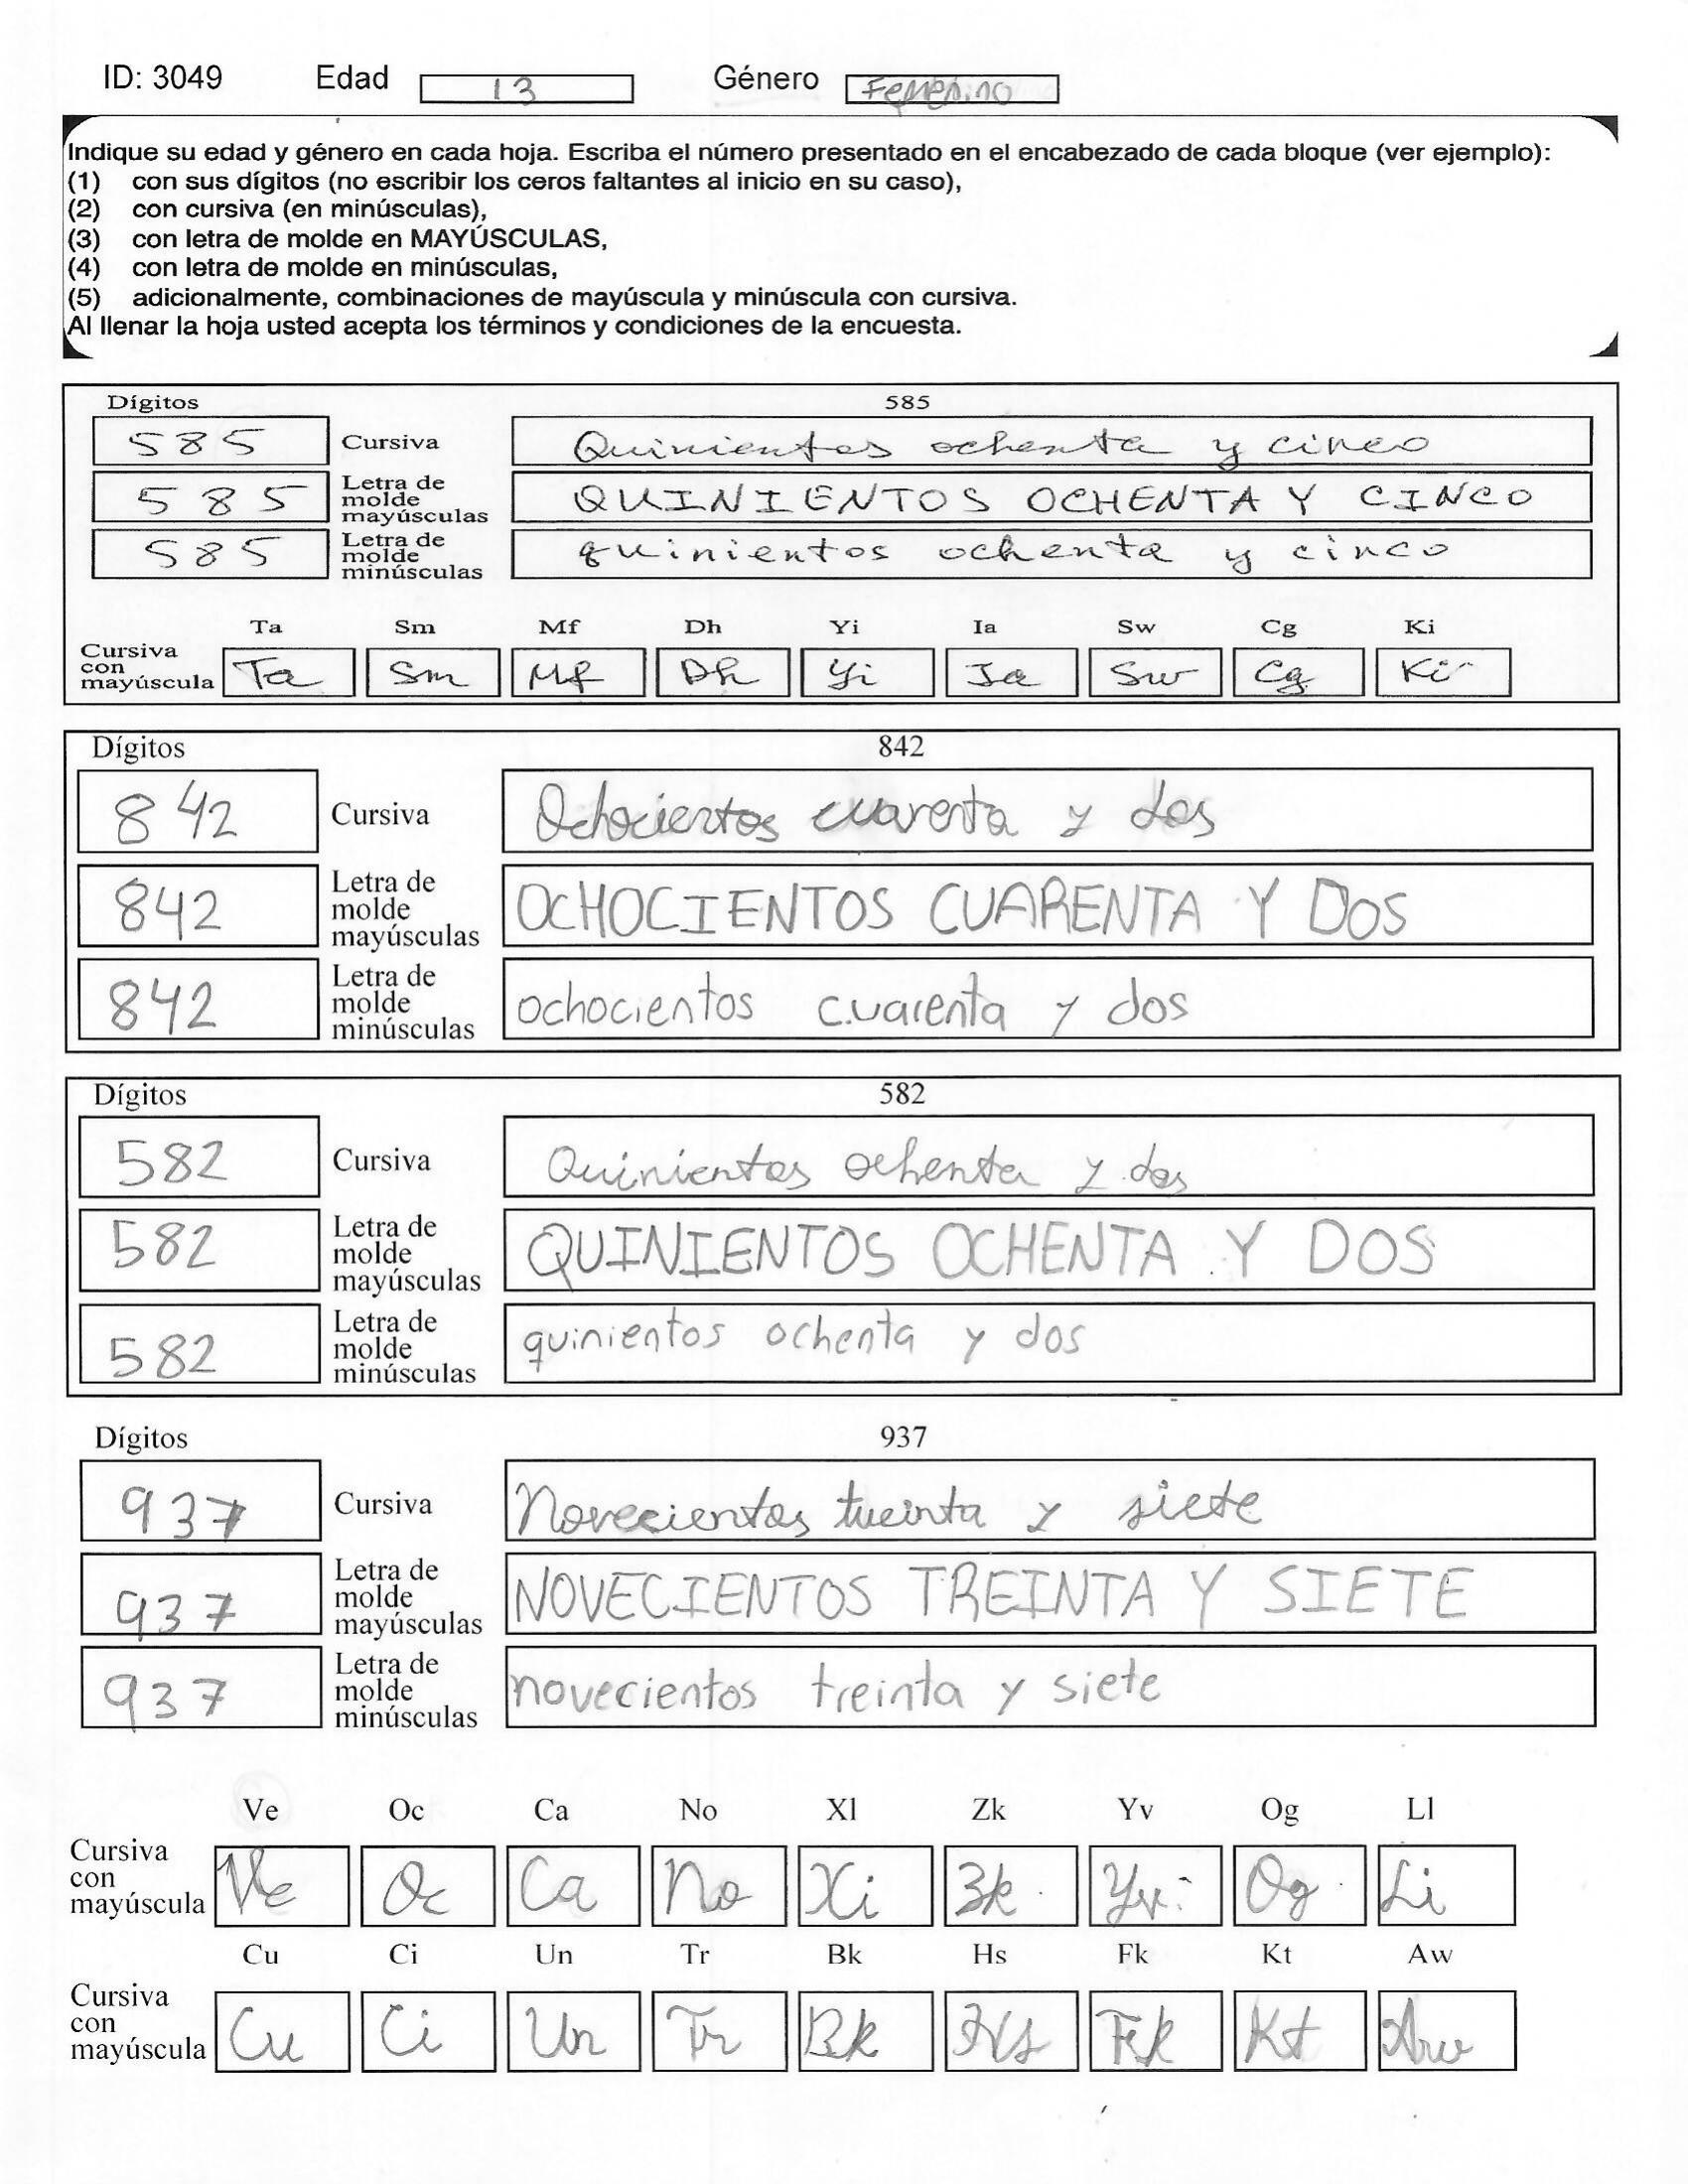 ID: 3049 Edad 13 Género Femenino
Indique su edad y género en cada hoja. Escriba el número presentado en el encabezado de cada bloque (ver ejemplo):
(1) con sus dígitos (no escribir los ceros faltantes al inicio en su caso),
(2) con cursiva (en minúsculas),
(3) con letra de molde en MAYÚSCULAS,
(4) con letra de molde en minúsculas,
(5) adicionalmente, combinaciones de mayúscula y minúscula con cursiva.
Al llenar la hoja usted acepta los términos y condiciones de la encuesta.
Dígitos 585
585 Cursiva Quinientos ochenta y cinco
585 Letra de molde mayúsculas QUINIENTOS OCHENTA Y CINCO
585 Letra de molde minúsculas quinientos ochenta y cinco
Ta Sm Mf Dh Yi Ia Sw Cg Ki
Cursiva con mayúscula Ta Sm Mf Dh Yi Ia Sw Cg Ki
Dígitos 842
842 Cursiva Ochocientos cuarenta y dos
842 Letra de molde mayúsculas OCHOCIENTOS CUARENTA Y DOS
842 Letra de molde minúsculas ochocientos cuarenta y dos
Dígitos 582
582 Cursiva Quinientos ochenta y dos
582 Letra de molde mayúsculas QUINIENTOS OCHENTA Y DOS
582 Letra de molde minúsculas quinientos ochenta y dos
Dígitos 937
937 Cursiva Novecientos treinta y siete
937 Letra de molde mayúsculas NOVECIENTOS TREINTA Y SIETE
937 Letra de molde minúsculas novecientos treinta y siete
Ve Oc Ca No Xl Zk Yv Og Ll
Cursiva con mayúscula Ve Oc Ca No Xi Zk Yv Og Li
Cu Ci Un Tr Bk Hs Fk Kt Aw
Cursiva con mayúscula Cu Ci Un Tr Bk Hs Fk Kt Aw